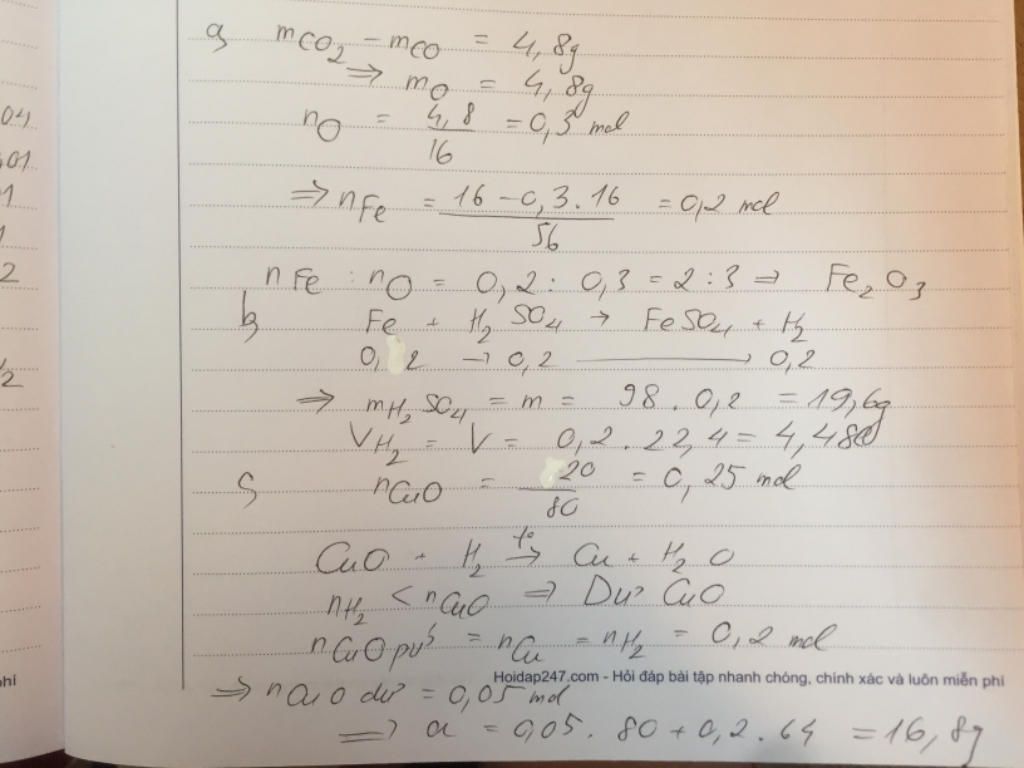 04
01
1
2
1/2
a, mCO2 - mCO = 4,8g
=> mO = 4,8g
nO = 4,8/16 = 0,3 mol
=> nFe = 16 - 0,3.16/56 = 0,2 mol
nFe : nO = 0,2 : 0,3 = 2:3 => Fe2O3
b, Fe + H2SO4 → FeSO4 + H2
0,2 → 0,2 → 0,2
=> mH2SO4 = m = 98.0,2 = 19,6g
VH2 = V = 0,2.22,4 = 4,48l
c, nCuO = 20/80 = 0,25 mol
CuO + H2 →to Cu + H2O
nH2 < nCuO => Dư CuO
nCuO pứ = nCu = nH2 = 0,2 mol
phí
Hoidap247.com - Hỏi đáp bài tập nhanh chóng, chính xác và luôn miễn phí
=> nCuO dư = 0,05 mol
=> a = 0,05.80 + 0,2.64 = 16,8g